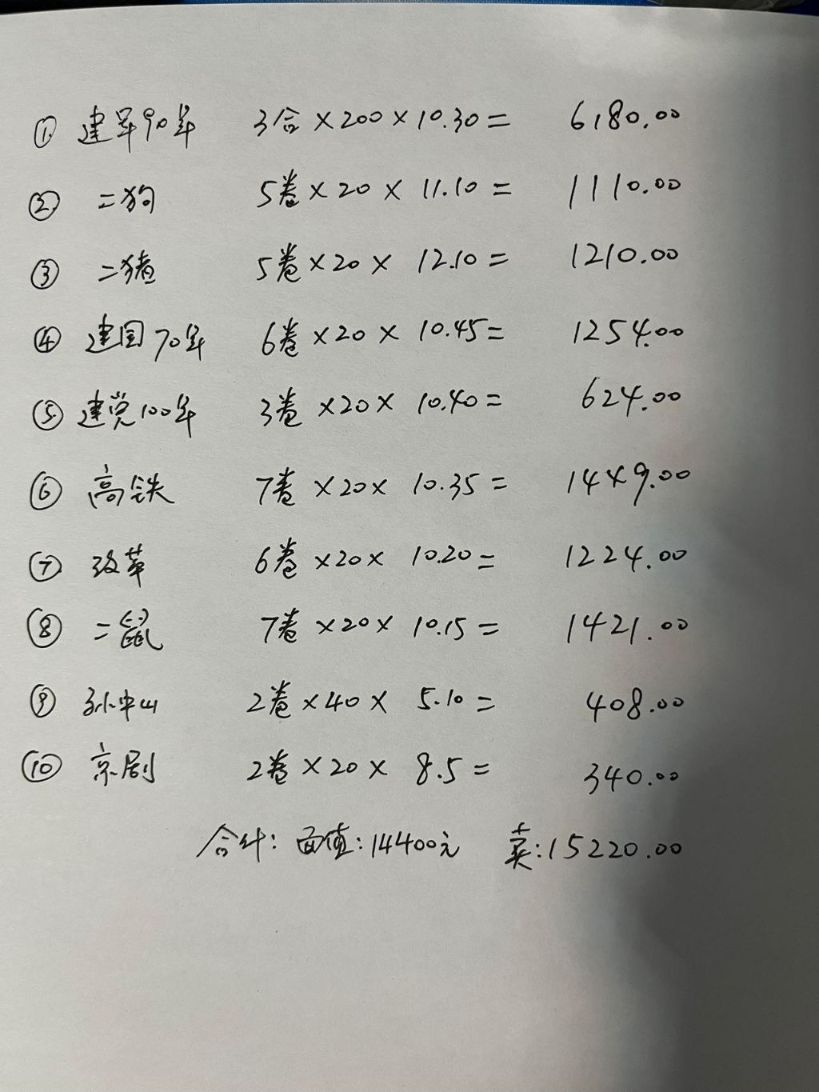 ① 建军90年 3合×200×10.30= 6180.00
② 二狗 5卷×20×11.10= 1110.00
③ 二猪 5卷×20×12.10= 1210.00
④ 建国70年 6卷×20×10.45= 1254.00
⑤ 建党100年 3卷×20×10.40= 624.00
⑥ 高铁 7卷×20×10.35= 1449.00
⑦ 改革 6卷×20×10.20= 1224.00
⑧ 二鼠 7卷×20×10.15= 1421.00
⑨ 孙中山 2卷×40×5.10= 408.00
⑩ 京剧 2卷×20×8.5= 340.00
合计: 面值:14400元 卖:15220.00